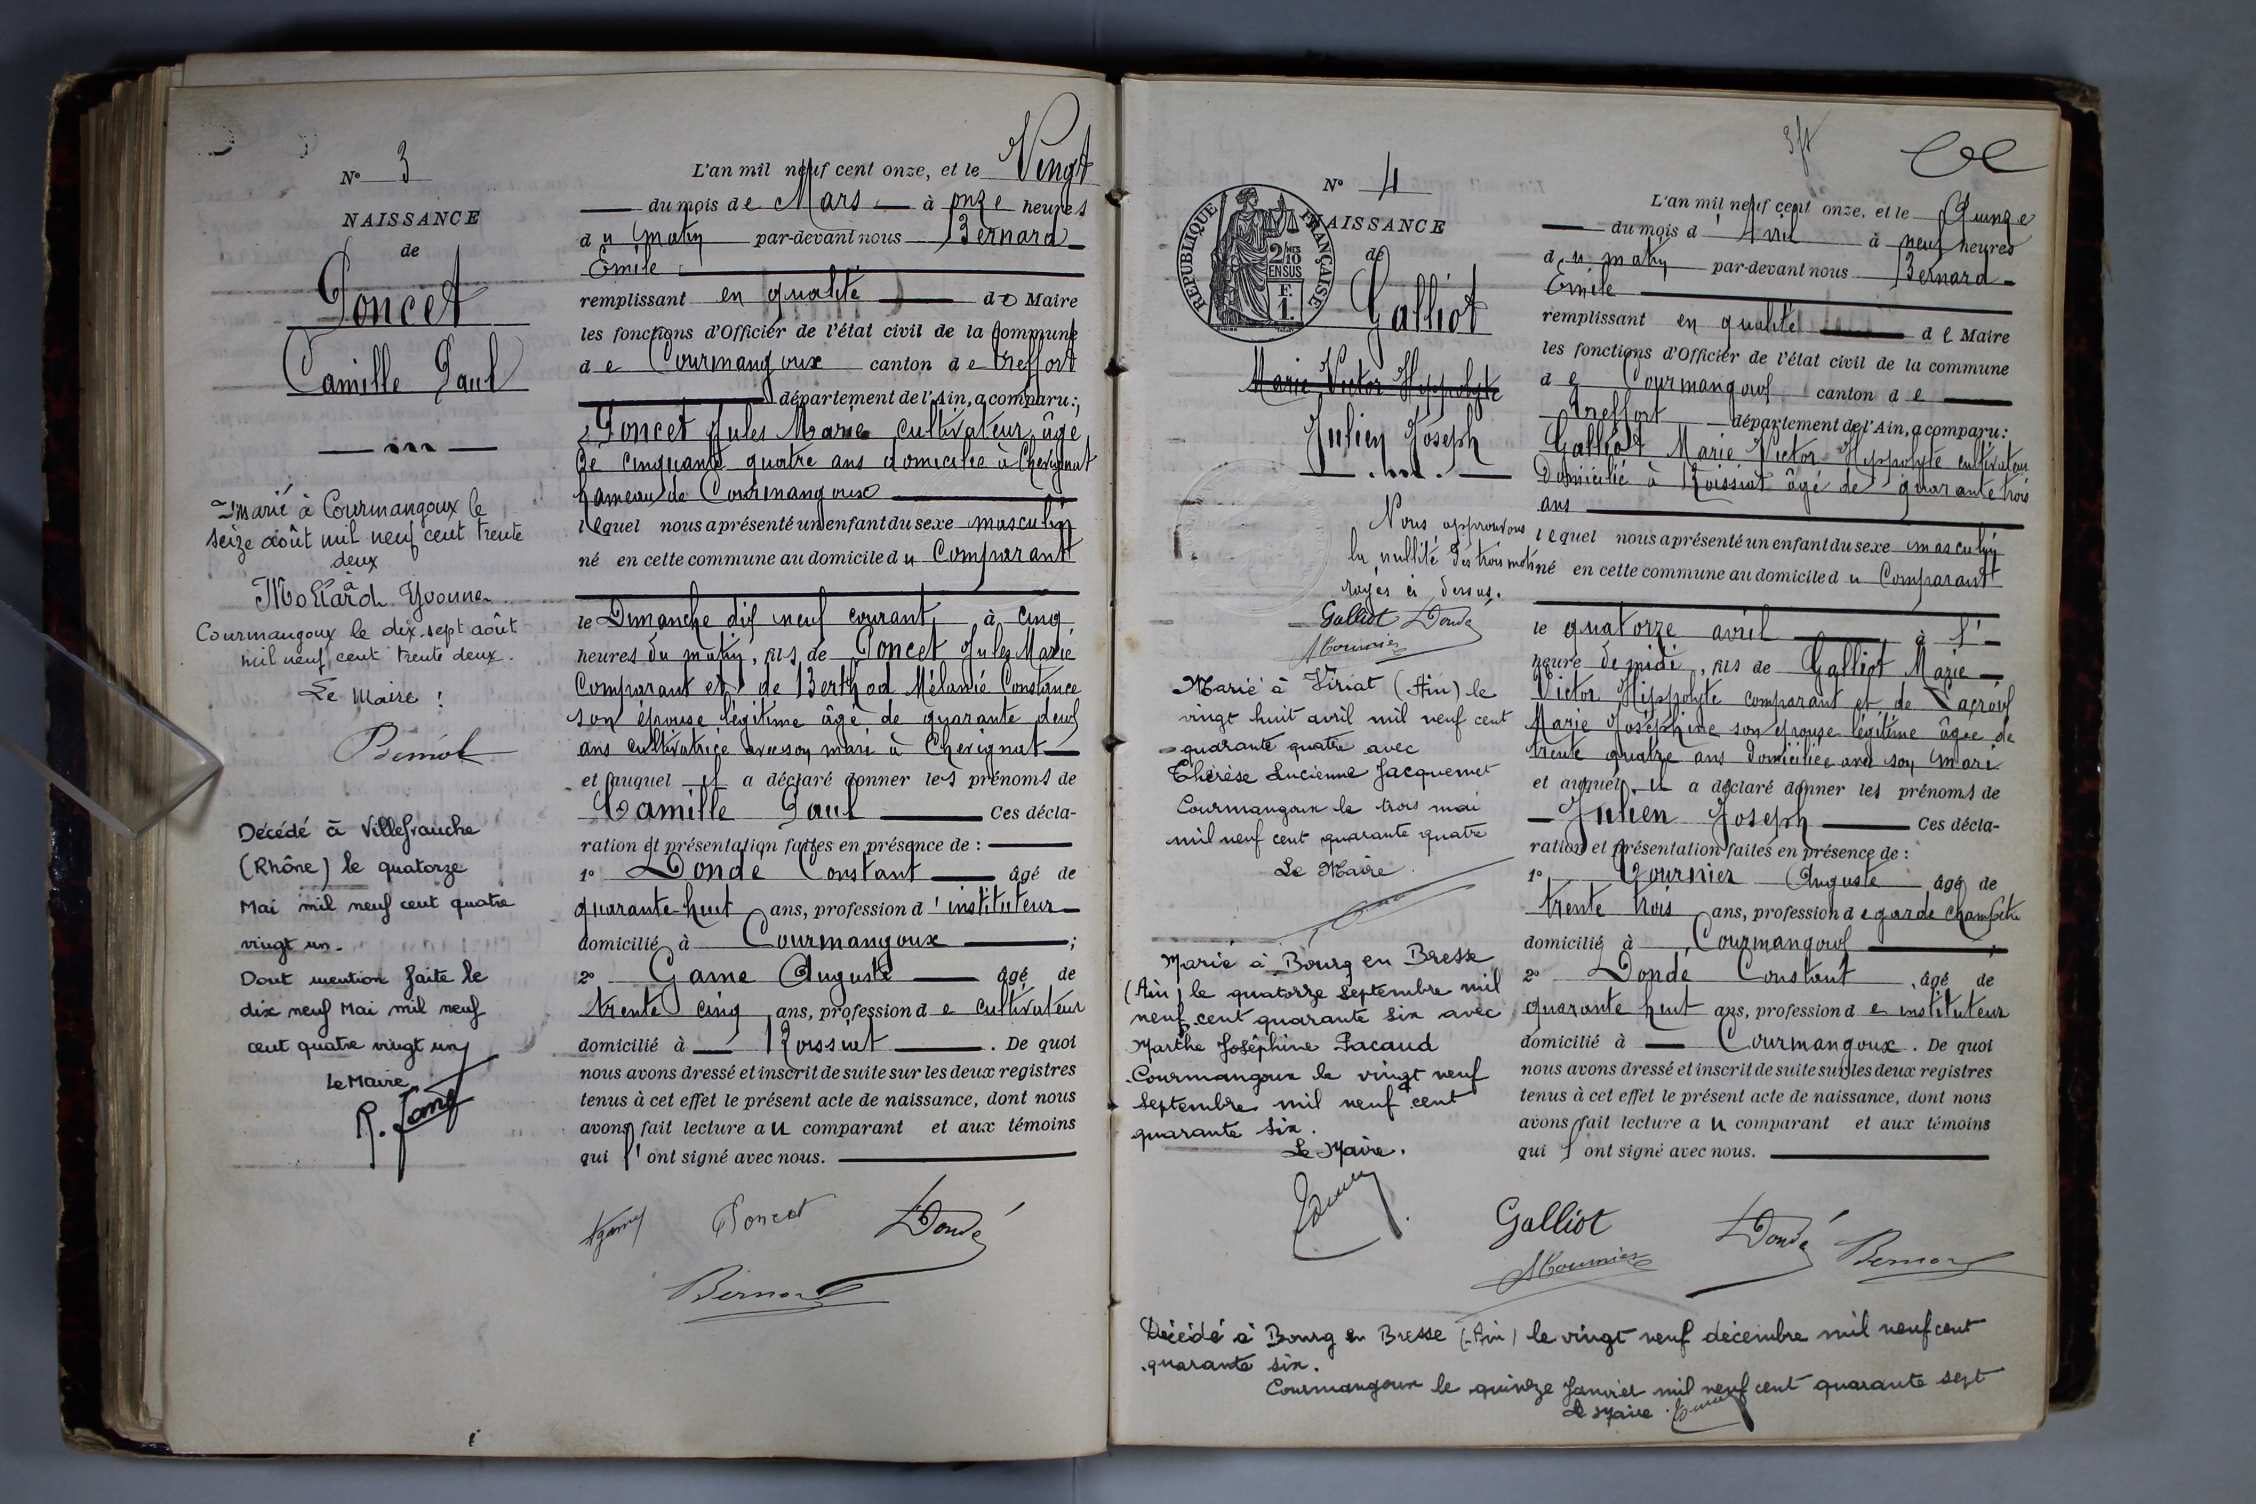 N° 3
NAISSANCE
de
Poncet
Camille Paul
Marié à Courmangoux le
seize août mil neuf cent trente
deux
à
Mollard Yvonne
Courmangoux le dix sept août
mil neuf cent trente deux.
Le Maire :
Décédé à Villefranche
(Rhône) le quatorze
Mai mil neuf cent quatre
vingt un.
Dont mention faite le
dix neuf Mai mil neuf
cent quatre vingt un
Le Maire
L'an mil neuf cent onze, et le Vingt
du mois de Mars à onze heures
du matin par-devant nous Bernard
Emile
remplissant en qualité de Maire
les fonctions d'Officier de l'état civil de la commune
de Courmangoux canton de Treffort
département de l'Ain, a comparu:
Poncet Jules Marie cultivateur âgé
de cinquante quatre ans domicilié à Chevignat
hameau de Courmangoux
lequel nous a présenté un enfant du sexe masculin
né en cette commune au domicile du Comparant
le Dimanche dix neuf courant à cinq
heures du matin, fils de Poncet Jules Marie
Comparant et de Berthod Mélanie Constance
son épouse légitime âgé de quarante deux
ans cultivatrice avec son mari à Chevignat
et auquel il a déclaré donner les prénoms de
Camille Paul Ces décla-
ration et présentation faites en présence de :
1° Dondé Constant âgé de
quarante-huit ans, profession d'instituteur
domicilié à Courmangoux ;
2° Game Auguste âgé de
trente cinq ans, profession de cultivateur
domicilié à Roissiat . De quoi
nous avons dressé et inscrit de suite sur les deux registres
tenus à cet effet le présent acte de naissance, dont nous
avons fait lecture au comparant et aux témoins
qui l'ont signé avec nous.
Poncet Dondé
Bernard
N° 4
NAISSANCE
de
RÉPUBLIQUE FRANÇAISE
2/10 EN SUS
F.
1.
Galliot
Marie Victor Hyppolyte
Julien Joseph
Nous approuvons
la nullité des trois mots
rayés ci dessus.
Galliot Dondé
Marié à Viriat (Ain) le
vingt huit avril mil neuf cent
quarante quatre avec
Thérèse Lucienne Jacquemet
Courmangoux le trois mai
mil neuf cent quarante quatre
Le Maire
Marié à Bourg en Bresse
(Ain) le quatorze septembre mil
neuf cent quarante six avec
Marthe Joséphine Pacaud
Courmangoux le vingt neuf
septembre mil neuf cent
quarante six.
Le Maire.
L'an mil neuf cent onze, et le Quinze
du mois d'Avril à neuf heures
du matin par-devant nous Bernard
Emile
remplissant en qualité de Maire
les fonctions d'Officier de l'état civil de la commune
de Courmangoux canton de
Treffort département de l'Ain, a comparu:
Galliot Marie Victor Hyppolyte cultivateur
Domicilié à Roissiat âgé de quarante trois
ans
lequel nous a présenté un enfant du sexe masculin
né en cette commune au domicile du Comparant
le quatorze avril à l'
heure de midi, fils de Galliot Marie
Victor Hippolyte comparant et de Lacroix
Marie Joséphine son épouse légitime âgée de
trente quatre ans domiciliée avec son mari
et auquel il a déclaré donner les prénoms de
Julien Joseph Ces décla-
ration et présentation faites en présence de :
1° Auguste âgé de
trente trois ans, profession de garde champêtre
domicilié à Courmangoux ;
2° Dondé Constant, âgé de
quarante huit ans, profession de instituteur
domicilié à Courmangoux. De quoi
nous avons dressé et inscrit de suite sur les deux registres
tenus à cet effet le présent acte de naissance, dont nous
avons fait lecture au comparant et aux témoins
qui l'ont signé avec nous.
Galliot Dondé Bernard
Décédé à Bourg en Bresse (Ain) le vingt neuf décembre mil neuf cent
quarante six.
Courmangoux le quinze Janvier mil neuf cent quarante sept
Le Maire